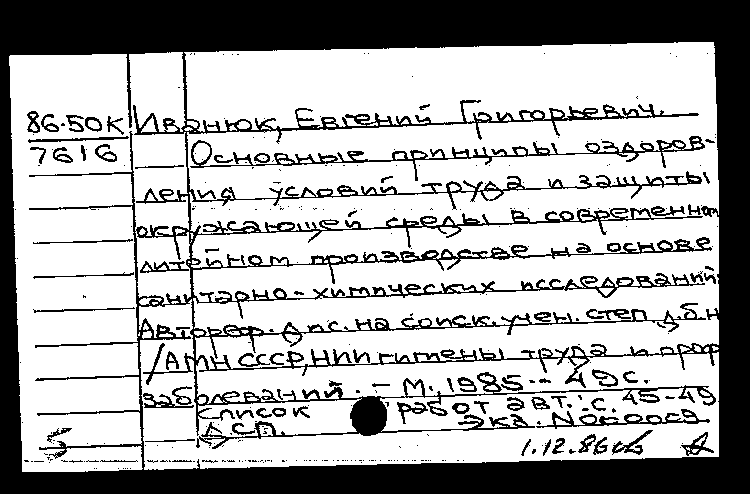 86-50К Иванюк, Евгений Григорьевич.
7616 Основные принципы оздоров-
ления условий труда и защиты
окружающей среды в современном
литейном производстве на основе
санитарно-химических исследований:
Автореф. дис. на соиск. учен. степ. д.б.н
/АМН СССР, НИИ гигиены труда и проф
заболеваний. - М., 1985. - 49 с.
Список работ авт.: с. 45-49
Д.С.П. Экз. N00005
5 1.12.86